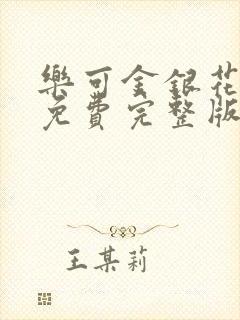 樂可金銀花
免費完整版
王某莉